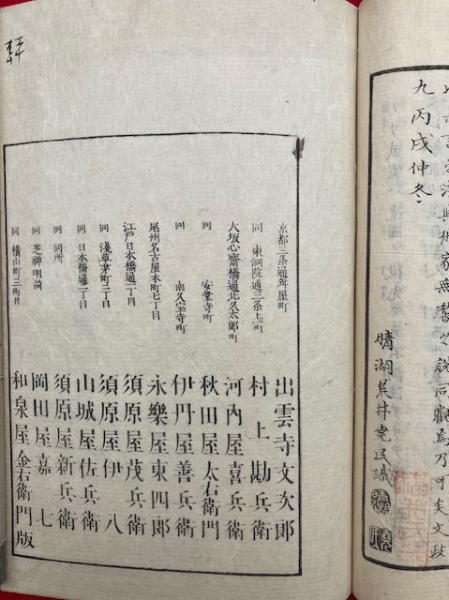 術家無稽之説同觀焉乃可矣文政
九丙戌仲冬
晴湖荒井堯民識
京都三条通舛屋町 出雲寺文次郎
同 東洞院通三条上ル町 村上勘兵衛
大坂心齋橋通北久太郎町 河内屋喜兵衛
同 安堂寺町 秋田屋太右衛門
同 南久宝寺町 伊丹屋善兵衛
尾州名古屋本町七丁目 永樂屋東四郎
江戸日本橋通一丁目 須原屋茂兵衛
同 淺草茅町二丁目 須原屋伊八
同 日本橋通二丁目 山城屋佐兵衛
同 同所 須原屋新兵衛
同 芝神明前 岡田屋嘉七
同 横山町三丁目 和泉屋金右衛門版